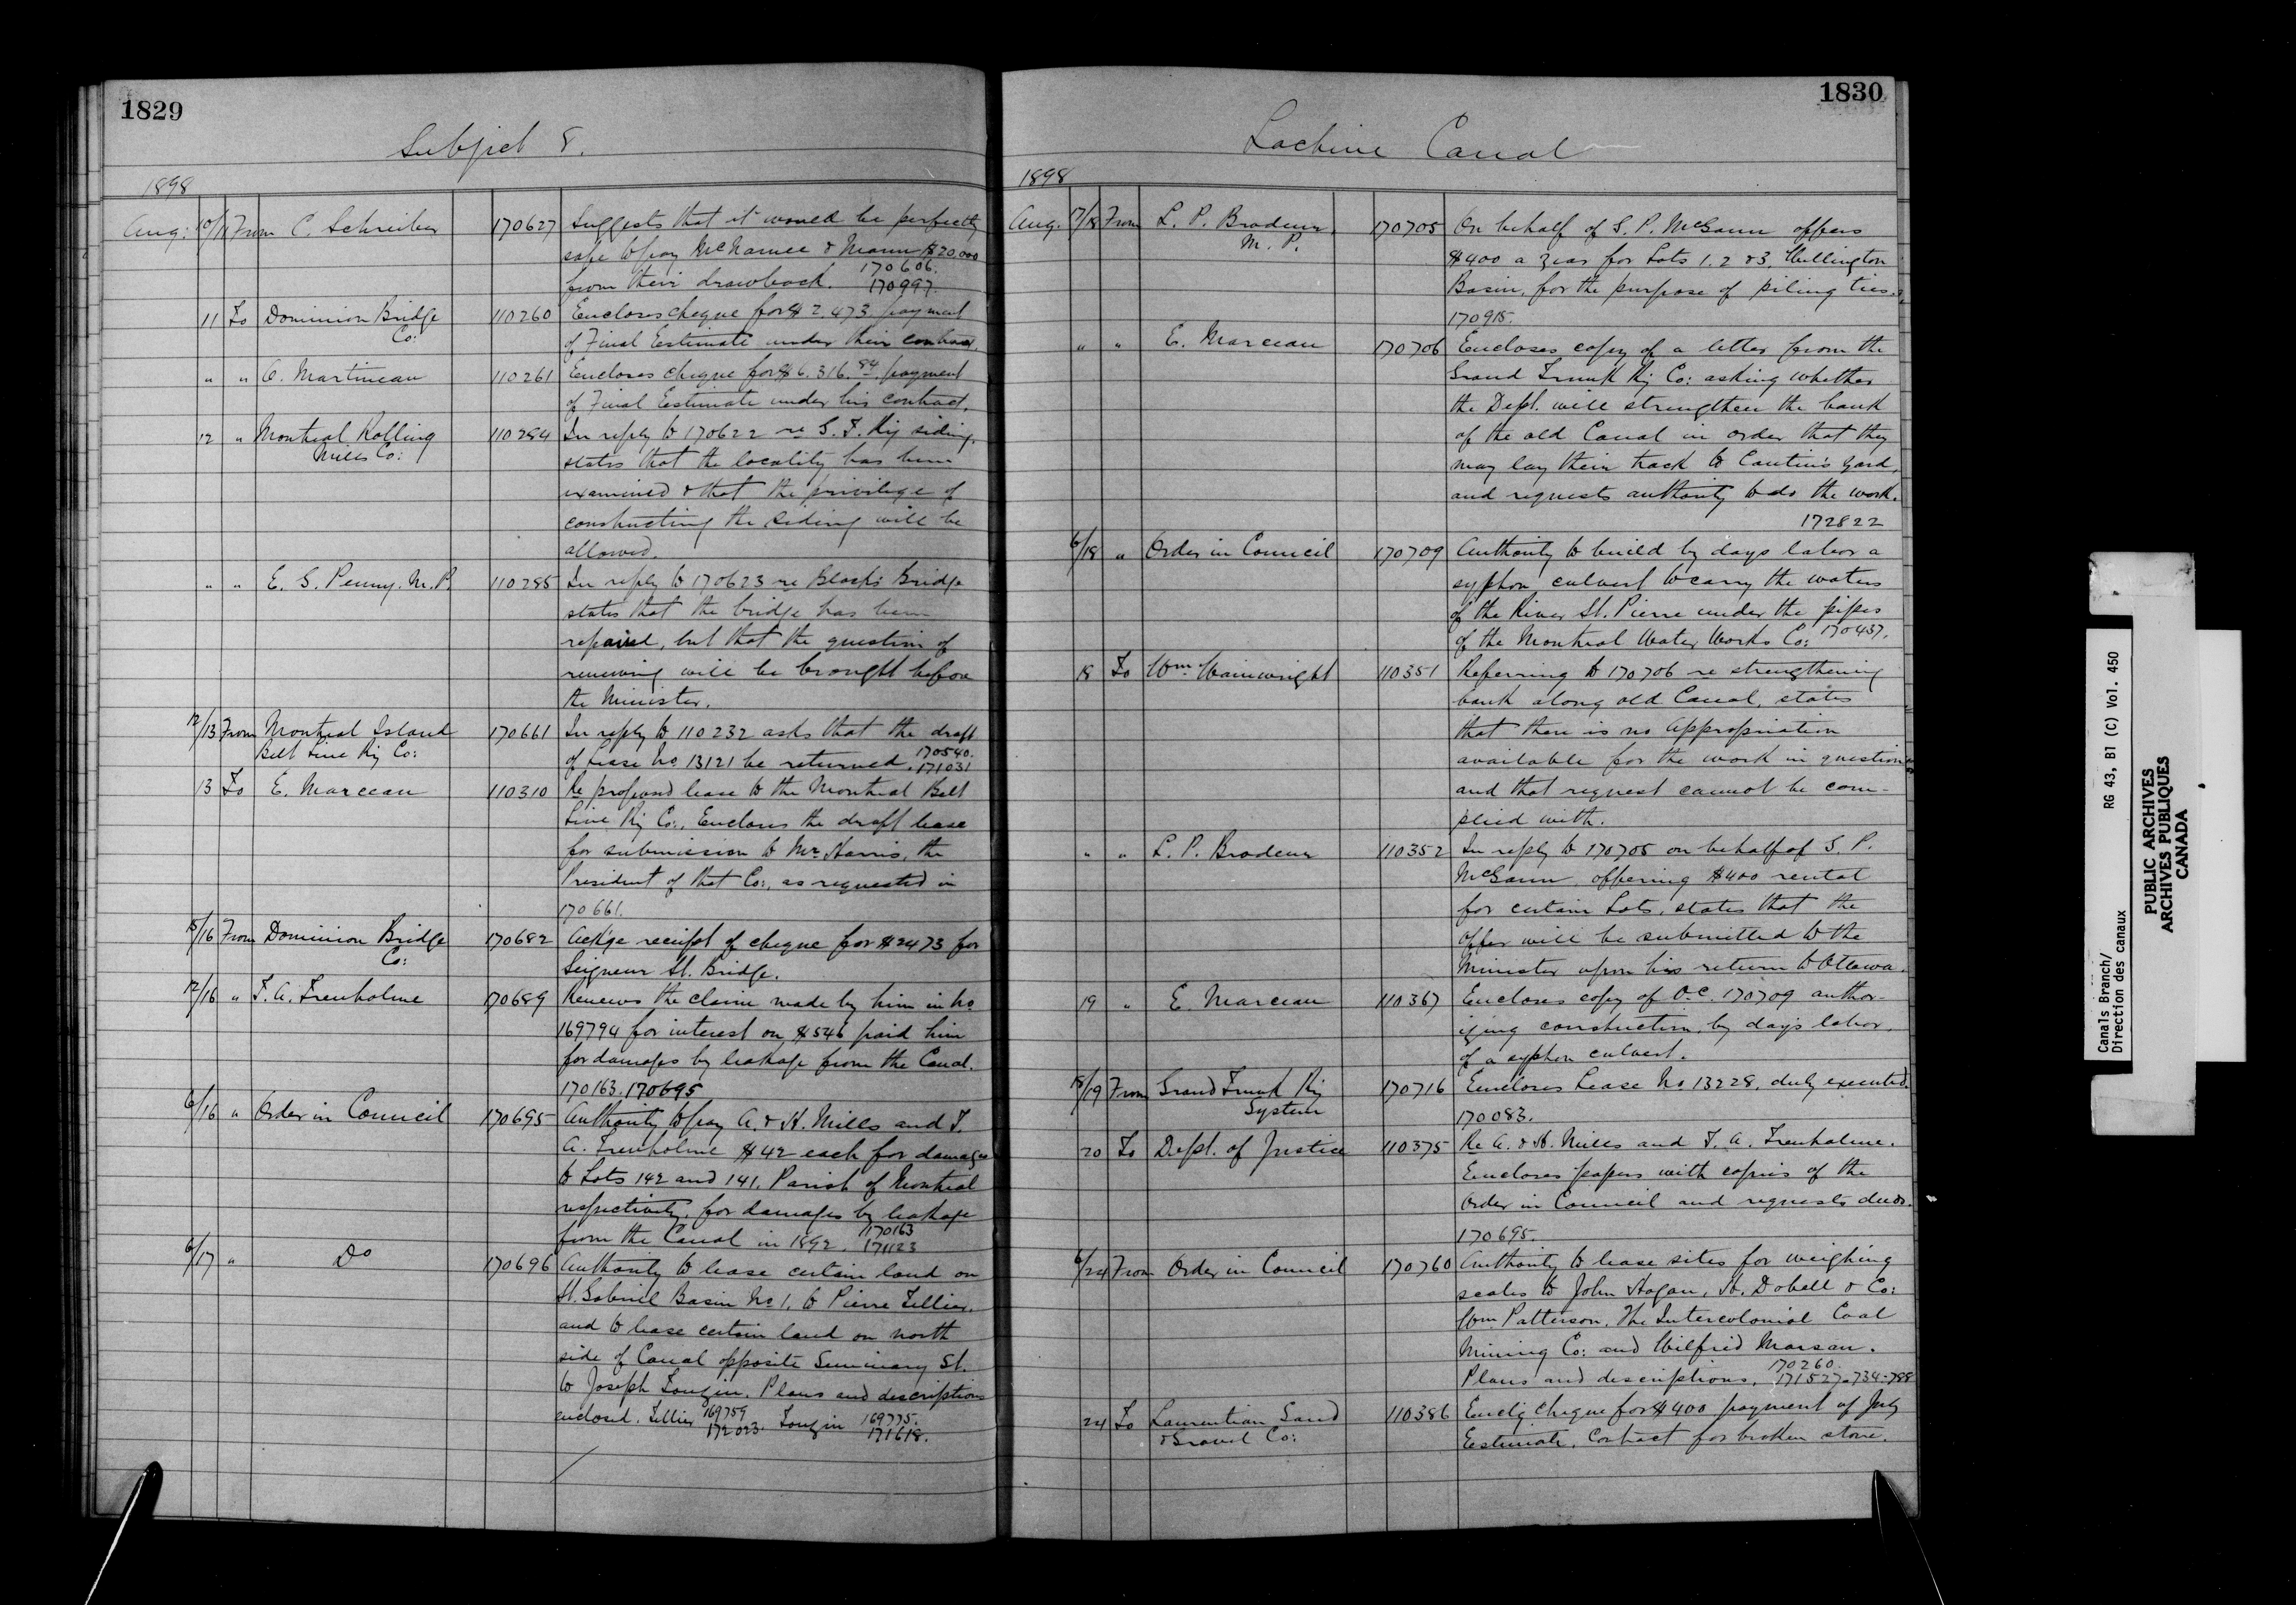 1829
Subject 8.
1898
Aug: 10/11 From C. Schreiber 170627 Suggests that it would be perfectly
safe to pay McNamee & Mann $20,000
from their drawback. 170606.
170997.
11 To Dominion Bridge 110260 Encloses cheque for $2,473. payment
Co: of Final Estimate under their contract.
" " O. Martineau 110261 Encloses cheque for $6,316.84 payment
of Final Estimate under his contract.
12 " Montreal Rolling 110284 In reply to 170622 re G. T. Ry siding,
Mills Co: states that the locality has been
examined & that the privilege of
constructing the siding will be
allowed.
" " E. G. Penny. M.P. 110285 In reply to 170623 re Black's Bridge
states that the bridge has been
repaired, but that the question of
renewing will be brought before
the Minister.
12/13 From Montreal Island 170661 In reply to 110232 asks that the draft
Belt Line Ry Co: of Lease No. 13121 be returned. 170540.
171031
13 To E. Marceau 110310 Re proposed lease to the Montreal Belt
Line Ry Co., Encloses the draft lease
for submission to Mr. Harris, the
President of that Co:, as requested in
170661.
15/16 From Dominion Bridge 170682 Ack'ge receipt of cheque for $2473 for
Co: Seigneur St. Bridge.
12/16 " T. A. Trenholme 170689 Renews the claim made by him in No.
169794 for interest on $546 paid him
for damages by leakage from the Canal.
170163. 170695
6/16 " Order in Council 170695 Authority to pay A. & H. Mills and T.
A. Trenholme $42 each for damages
to Lots 142 and 141, Parish of Montreal
respectively, for damages by leakage
from the Canal in 1892. 170163
171123
6/17 " Do 170696 Authority to lease certain land on
St. Gabriel Basin No 1, to Pierre Tellier,
and to lease certain land on north
side of Canal opposite Seminary St.
to Joseph Tougin. Plans and descriptions
enclosed. Tellier 169759 Tougin 169775.
172023. 171618.
1830
Lachine Canal
1898
Aug. 17/18 From L. P. Brodeur 170705 On behalf of S. P. McGann offers
M. P. $400 a year for Lots 1. 2 & 3, Wellington
Basin, for the purpose of piling ties.
170915.
" " E. Marceau 170706 Encloses copy of a letter from the
Grand Trunk Ry Co: asking whether
the Dept. will strengthen the bank
of the old Canal in order that they
may lay their track to Cantin's yard,
and requests authority to do the work.
172822
6/18 " Order in Council 170709 Authority to build by days labor a
syphon culvert to carry the waters
of the River St. Pierre under the pipes
of the Montreal Water Works Co: 170437.
18 To Wm. Wainwright 110351 Referring to 170706 re strengthening
bank along old Canal, states
that there is no appropriation
available for the work in question
and that request cannot be com-
plied with.
" " L. P. Brodeur 110352 In reply to 170705 on behalf of S. P.
McGann, offering $400 rental
for certain Lots, states that the
offer will be submitted to the
Minister upon his return to Ottawa.
19 " E. Marceau 110367 Encloses copy of O.C. 170709 author-
izing construction, by day's labor,
of a syphon culvert.
18/19 From Grand Trunk Ry 170716 Encloses Lease No 13228, duly executed.
System 170083.
20 To Dept. of Justice 110375 Re A. & H. Mills and T. A. Trenholme.
Encloses papers with copies of the
Order in Council and requests deeds.
170695.
6/24 From Order in Council 170760 Authority to lease sites for weighing
scales to John Hogan, H. Dobell & Co:
Wm Patterson, The Intercolonial Coal
Mining Co: and Wilfrid Marsan.
170260.
Plans and descriptions. 171527-734-788
24 To Laurentian Sand 110386 Encl'g cheque for $400 payment of July
& Gravel Co: Estimate, Contract for broken stone.
Canals Branch/ RG 43, B1 (C) Vol. 450
Direction des canaux
PUBLIC ARCHIVES
ARCHIVES PUBLIQUES
CANADA